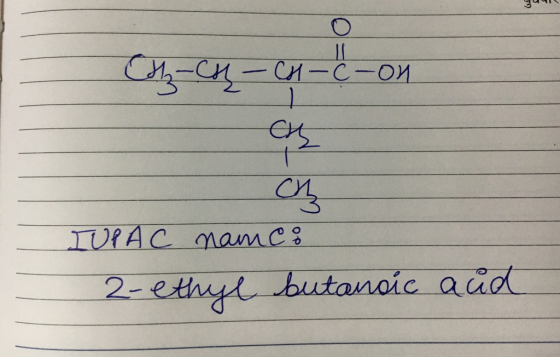 O
||
CH3–CH2–CH–C–OH
|
CH2
|
CH3
IUPAC name:
2-ethyl butanoic acid